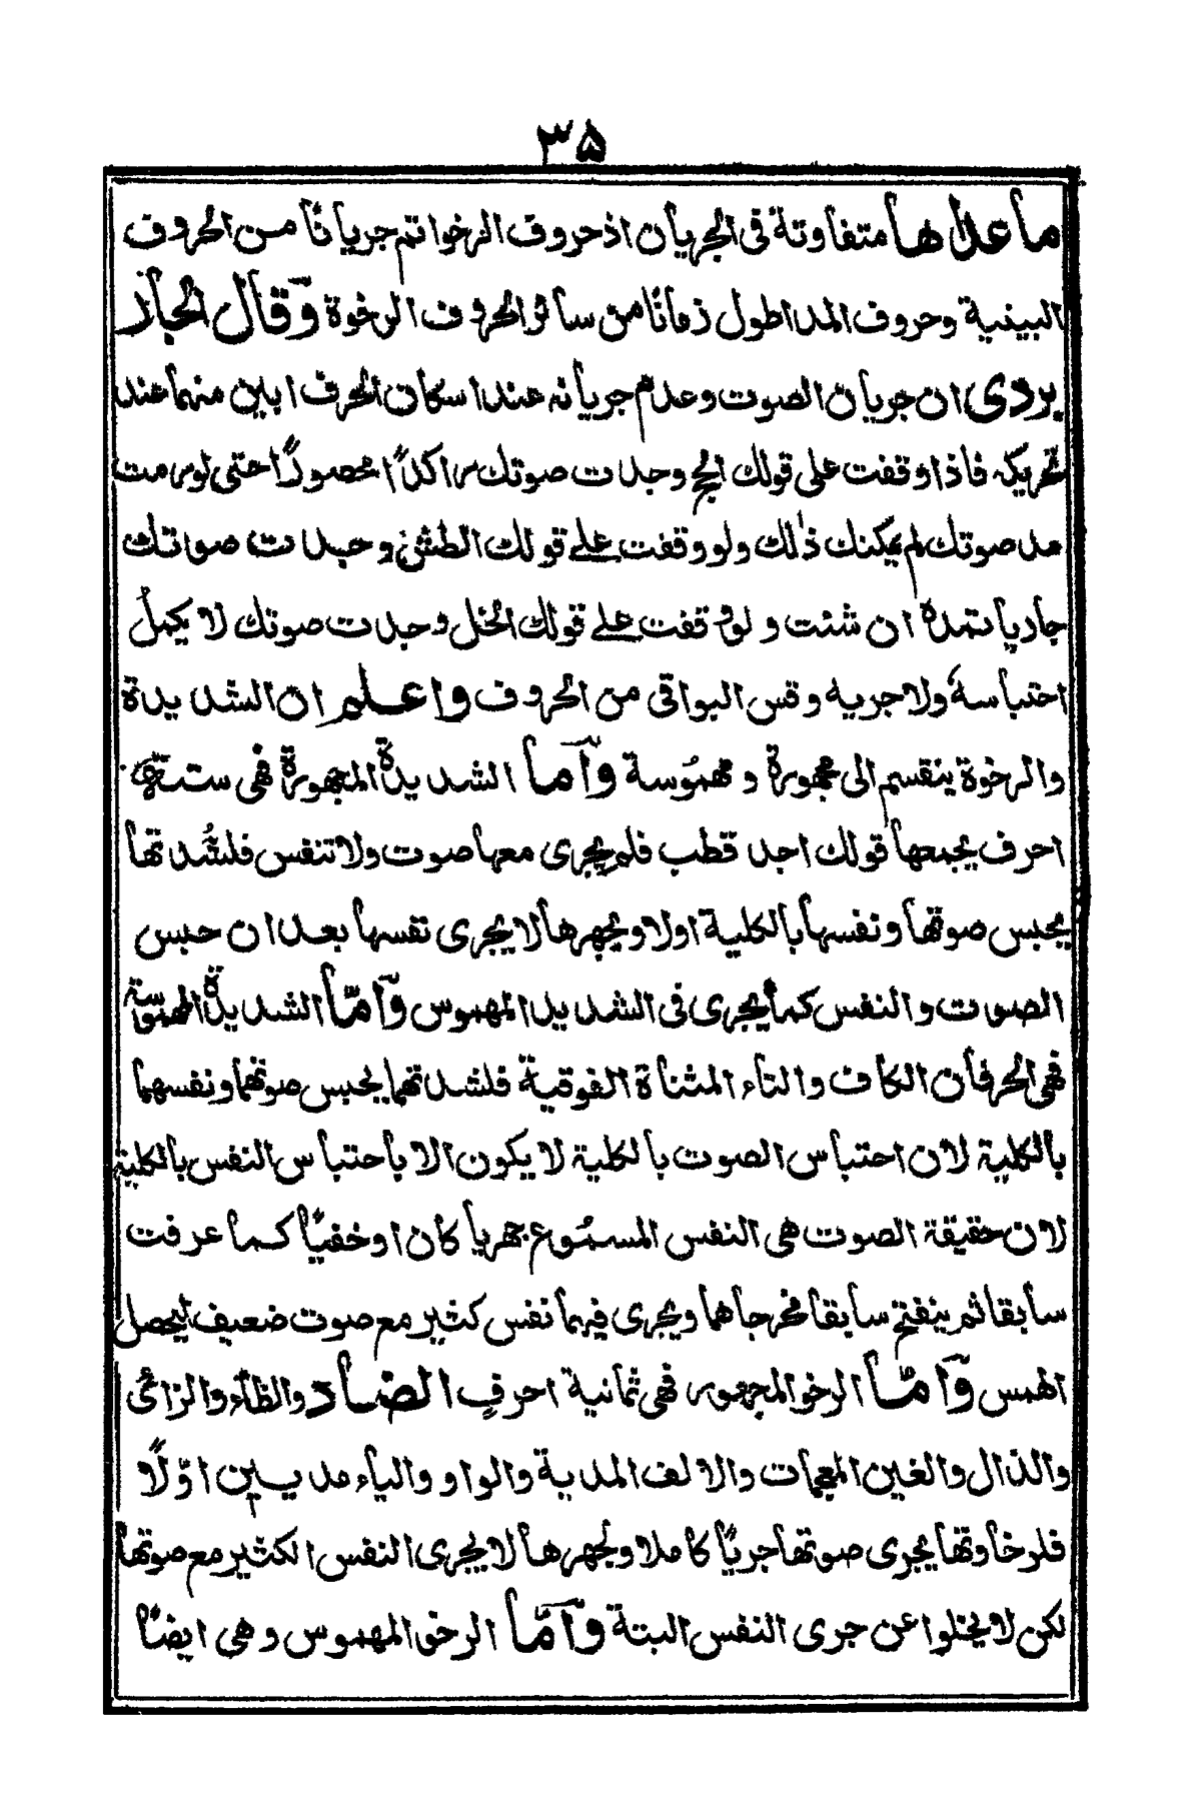 ۳۵
ما عداها متفاوتة فى الجريان اذ حروف الرخو اتم جريانًا من الحروف
البينية وحروف المد اطول زمانًا من سائر الحروف الرخوة وقال الجار
بردى ان جريان الصوت وعدم جريانه عند اسكان الحرف ابين منهما عند
تحريكه فاذا وقفت على قولك الحج وجدت صوتك راكدًا محصورًا حتى لو رمت
مد صوتك لم يمكنك ذٰلك ولو وقفت على قولك الطش وجدت صوتك
جاريا تمده ان شئت ولو وقفت على قولك الخل وجدت صوتك لا يكمل
احتباسه ولا جريه وقس البواقى من الحروف واعلم ان الشديدة
والرخوة ينقسم الى مجهورة ومهموسة وَاَما الشديدة المجهورة فهى ستة
احرف يجمعها قولك اجد قطب فلم يجرى معها صوت ولا تنفس فلشدتها
يحبس صوتها ونفسها بالكلية اولا ولجهرها لا يجرى نفسها بعد ان حبس
الصوت والنفس كما يجرى فى الشديد المهموس وَاَمّا الشديدة المهموسة
فهى الحرفان الكاف والتاء المثناة الفوقية فلشدتهما يحبس صوتهما ونفسهما
بالكلية لان احتباس الصوت بالكلية لا يكون الا باحتباس النفس بالكلية
لان حقيقة الصوت هى النفس المسموع جهريا كان او خفيًا كما عرفت
سابقا ثم ينفتح سابقا مخرجاهما ويجرى فيهما نفس كثير مع صوت ضعيف ليحصل
الهمس وَاَمّا الرخو المجهور فهى ثمانية احرفٍ الضاد والظاء والزائ
والذال والغين المعجمات والالف المدية والواو والياء مديين اوّلًا
فلرخاوتها يجرى صوتها جريًا كاملا ولجهرها لا يجرى النفس الكثير مع صوتها
لكن لا يخلوا عن جرى النفس البتة وَاَمّا الرخو المهموس وهى ايضًا